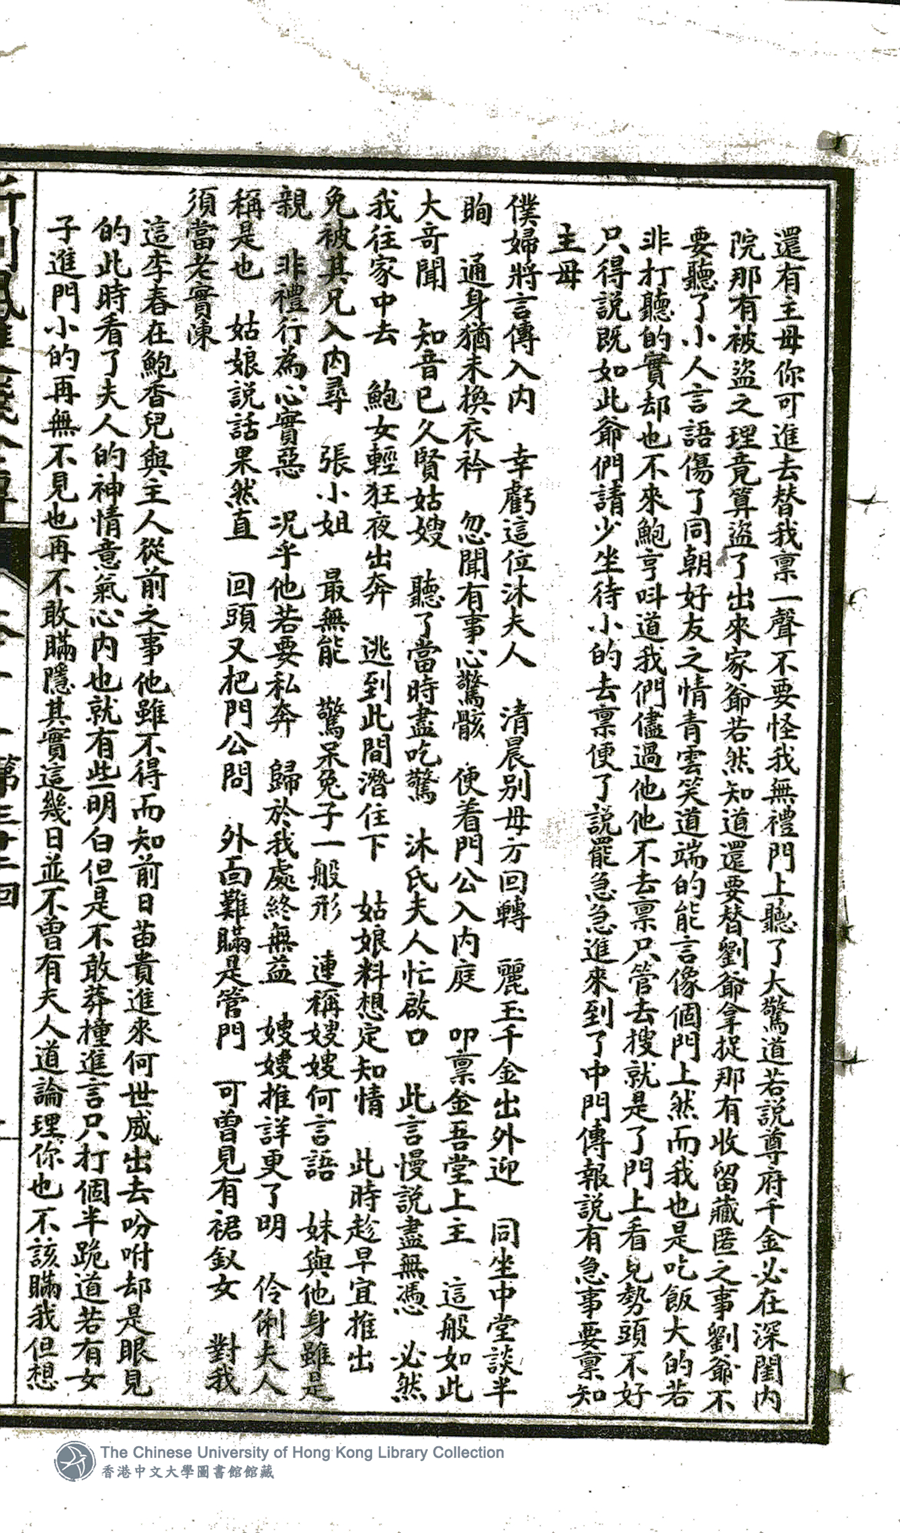 還有主母你可進去替我禀一聲不要怪我無禮門上聽了大驚道若説尊府千金必在深閨内
院那有被盗之理竟算盗了出來家爺若然知道還要替劉爺拿捉那有收留藏匿之事劉爺不
要聽了小人言語傷了同朝好友之情青雲笑道端的能言像個門上然而我也是吃飯大的若
非打聽的實却也不來鮑亨呌道我們儘過他他不去禀只管去搜就是了門上看見勢頭不好
只得説既如此爺們請少坐待小的去禀便了説罷急急進來到了中門傳報説有急事要禀知
主母
僕婦將言傳入内　幸虧這位沐夫人　清晨别母方回轉　麗玉千金出外迎　同坐中堂談半
晌　通身猶未換衣衿　忽聞有事心驚駭　便着門公入内庭　叩禀金吾堂上主　這般如此
大奇聞　知音已久賢姑嫂　聽了當時盡吃驚　沐氏夫人忙啟口　此言慢説盡無憑　必然
我往家中去　鮑女輕狂夜出奔　逃到此間潛住下　姑娘料想定知情　此時趁早宜推出
免被其兄入内尋　張小姐　最無能　驚呆兔子一般形　連稱嫂嫂何言語　妹與他身雖是
親　非禮行為心實惡　况乎他若要私奔　歸於我處終無益　嫂嫂推詳更了明　伶俐夫人
稱是也　姑娘説話果然直　回頭又把門公問　外面難瞞是管門　可曾見有裙釵女　對我
須當老實陳
這李春在鮑香兒與主人從前之事他雖不得而知前日苗貴進來何世威出去吩咐却是眼見
的此時看了夫人的神情意氣心内也就有些明白但是不敢莽撞進言只打個半跪道若有女
子進門小的再無不見也再不敢瞞隱其實這幾日並不曾有夫人道論理你也不該瞞我但想
第三十二回
The Chinese University of Hong Kong Library Collection
香港中文大學圖書館館藏